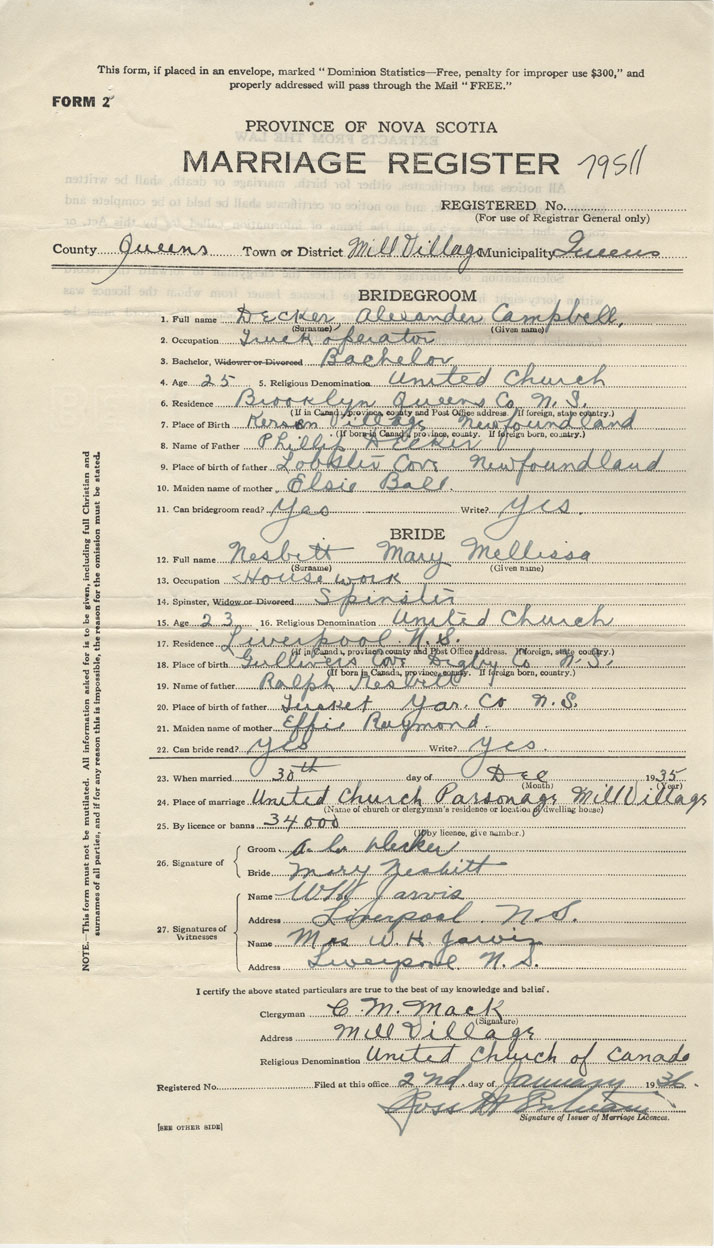 This form, if placed in an envelope, marked "Dominion Statistics—Free, penalty for improper use $300," and
properly addressed will pass through the Mail "FREE."
FORM 2
PROVINCE OF NOVA SCOTIA
MARRIAGE REGISTER 7951
REGISTERED No.
(For use of Registrar General only)
County Queens Town or District Mill Village Municipality Queens
BRIDEGROOM
1. Full name Decker, Alexander Campbell,
(Surname) (Given name)
2. Occupation Truck operator
3. Bachelor, Widower or Divorced Bachelor
4. Age 25 5. Religious Denomination United Church
6. Residence Brooklyn Queens Co. N.S.
(If in Canada, province, county and Post Office address. If foreign, state country.)
7. Place of Birth Village Newfoundland
(If born in Canada, province, county. If foreign born, country.)
8. Name of Father Phillip Decker
9. Place of birth of father Lobster Cove Newfoundland
10. Maiden name of mother Elsie Ball.
11. Can bridegroom read? Yes Write? Yes.
BRIDE
12. Full name Nesbitt Mary Mellissa
(Surname) (Given name)
13. Occupation Housework
14. Spinster, Widow or Divorced Spinster
15. Age 23 16. Religious Denomination United Church
17. Residence Liverpool N.S.
(If in Canada, province, county and Post Office address. If foreign, state country.)
18. Place of birth Gullivers Cove Digby Co N.S.
(If born in Canada, province, county. If foreign born, country.)
19. Name of father Ralph Nesbitt
20. Place of birth of father Tusket Yar. Co N.S.
21. Maiden name of mother Effie Raymond.
22. Can bride read? Yes Write? Yes.
23. When married 30th day of Dec 1935
(Month) (Year)
24. Place of marriage United Church Parsonage Mill Village
(Name of church or clergyman's residence or location of dwelling house)
25. By licence or banns 34000
(If by licence, give number.)
26. Signature of
Groom A. C. Decker
Bride Mary Nesbitt
27. Signatures of Witnesses
Name W H Jarvis
Address Liverpool N.S.
Name Mrs W. H. Jarvis
Address Liverpool N.S.
I certify the above stated particulars are true to the best of my knowledge and belief.
Clergyman C. M. Mack
(Signature)
Address Mill Village
Religious Denomination United Church of Canada
Registered No. Filed at this office 2nd day of January 1936.
Ross H
Signature of Issuer of Marriage Licences.
[SEE OTHER SIDE]
NOTE.—This form must not be mutilated. All information asked for is to be given, including full Christian and
surnames of all parties, and if for any reason this is impossible, the reason for the omission must be stated.